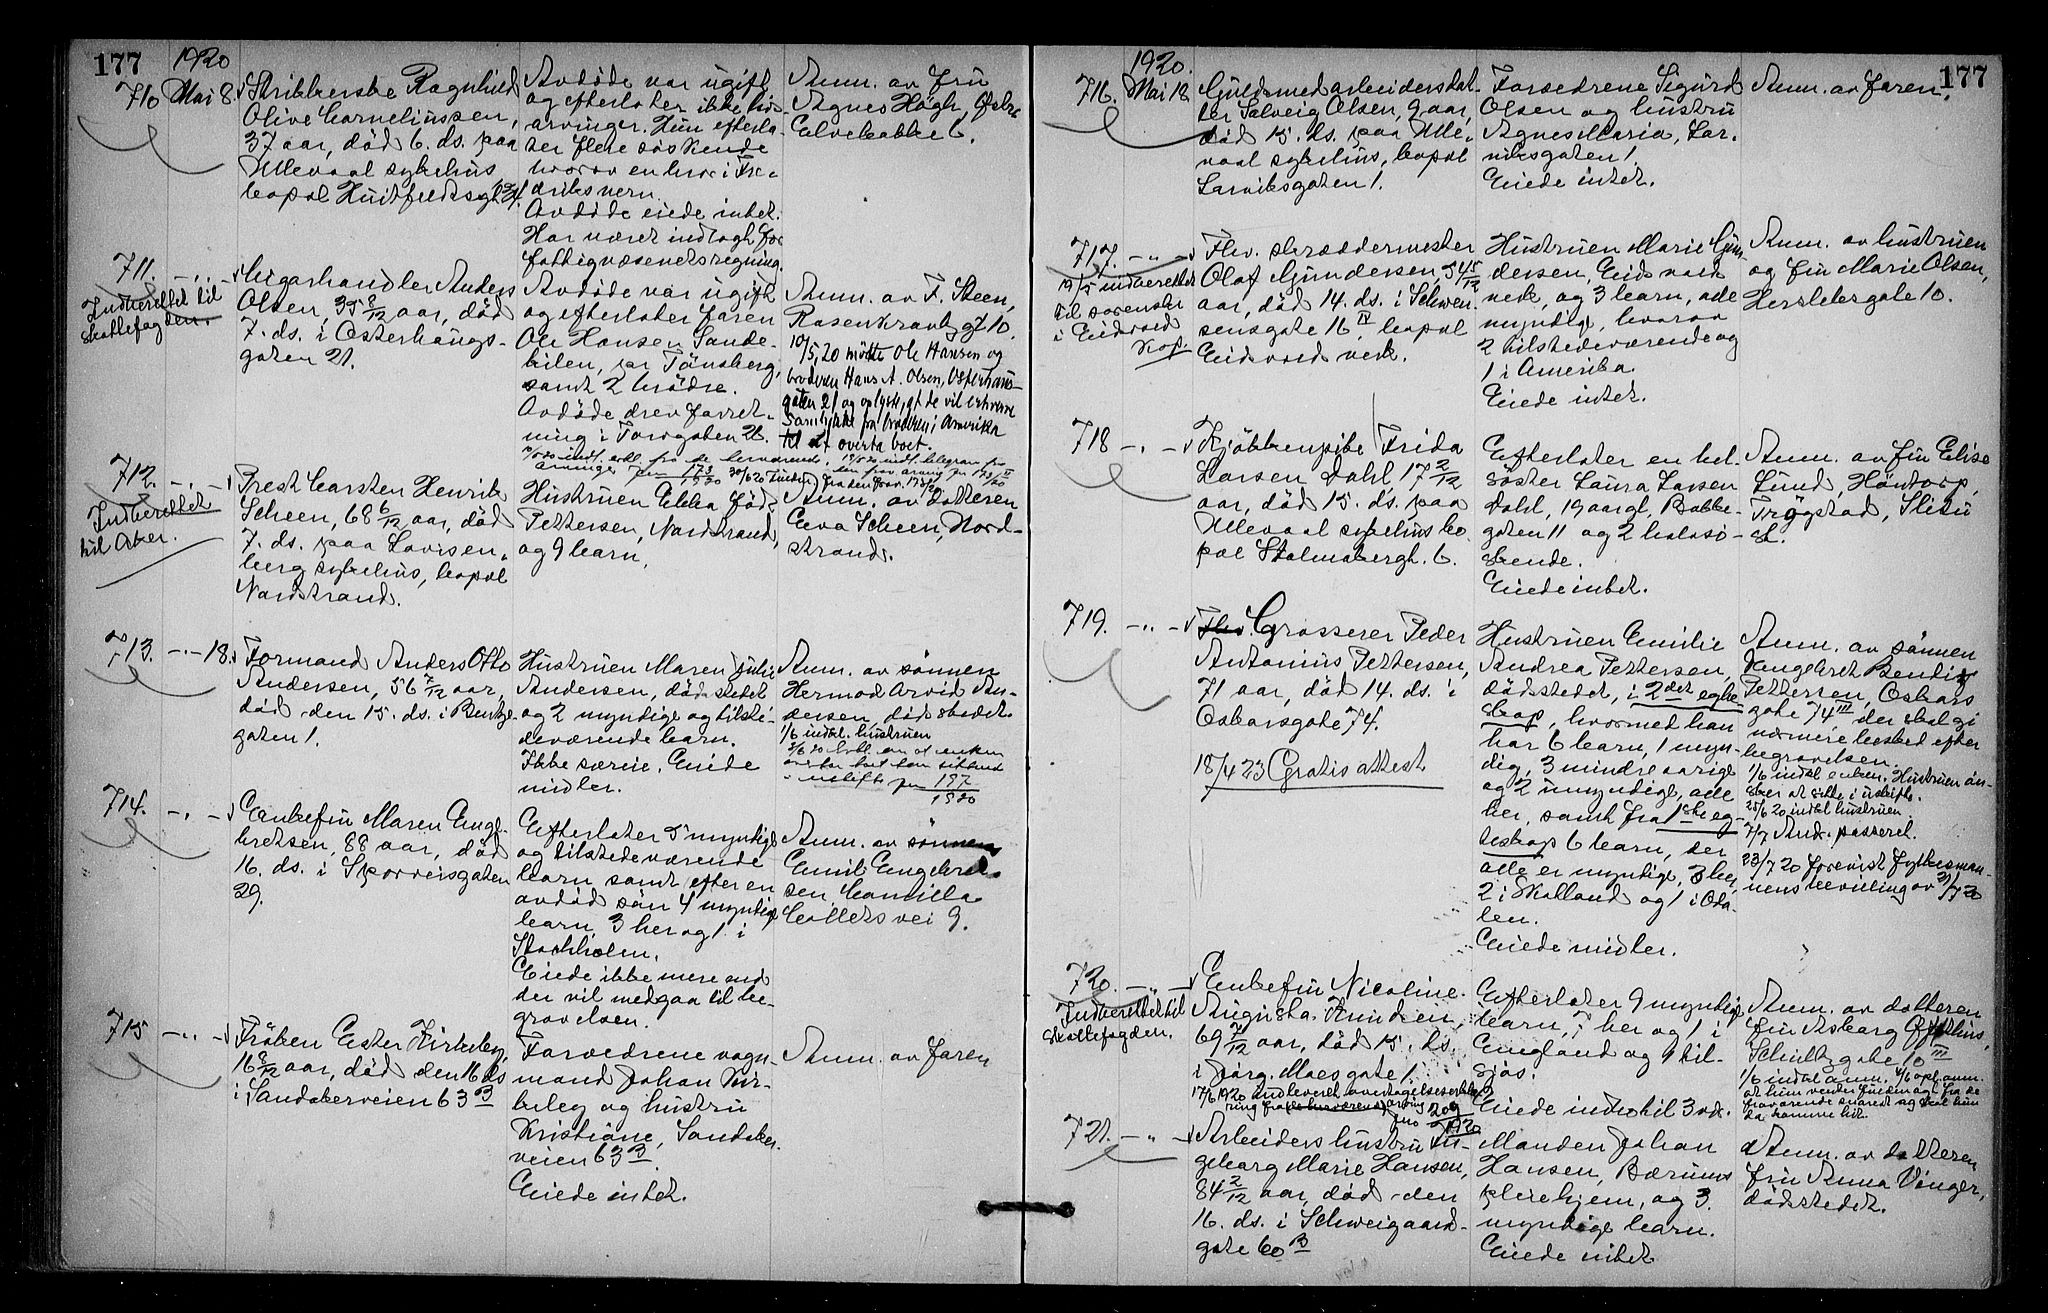 177
1920
710 Mai 8. Strikkerske Ragnhild
Olive Corneliussen,
37 aar, død 6. ds. paa
Ullevaal sykehus
bopæl Huitfeldtsgt.
Avdøde var ugift
og efterlater ikke livs-
arvinger. Hun efterla-
ter flere søskende
hvorav en bror i Fre-
driksvern.
Avdøde eiede intet.
Har været indlagt for
fattigvæsenets regning.
Anm. av fru
Agnes Høgh, Østre
Elvebakke 6.
711. -"- Cigarhandler Anders
Olsen, 35 8/12 aar, død
7. ds. i Osterhaugs-
gaten 21.
Indberettet til
skattefogden.
Avdøde var ugift
og efterlater faren
Ole Hansen Sande-
pr Tønsberg,
samt 2 brødre.
Avdøde drev forret-
ning i Torvgaten 26.
Anm. av F. Steen,
Rosenkrantzgt 10.
10/5 20 møtte Ole Hansen og
broderen Hans A. Olsen, Osterhaus-
gaten 21 og oplyste, at de vil erhverve
samtykke fra broderen i Amerika
til at overta boet.
712. -"- Prest Carsten Henrik
Scheen, 68 6/12 aar, død
7. ds. paa Lovisen-
berg sykehus, bopæl
Nordstrand.
Indberettet
til Aker.
Hustruen Ebba født
Pettersen, Nordstrand,
og 9 barn.
Anm. av datteren
Eva Scheen, Nord-
strand.
713. -"- 18. Formand Anders Otto
Andersen, 56 7/12 aar,
død den 15. ds. i Bentse-
gaten 1.
Hustruen Maren Julie
Andersen, dødsstedet
og 2 myndige og tilste-
deværende barn.
Ikke særeie. Eiede
midler.
Anm. av sønnen
Hermod Arvid An-
dersen, dødsstedet.
1/6 indtal. hustruen
197
1920
714. -"- Enkefru Maren Enge-
bretsen, 88 aar, død
16. ds. i Sporveisgaten
29.
Efterlater 5 myndige
og tilstedeværende
barn samt efter en
avdød søn 4 myndige
barn, 3 her og 1 i
Stockholm.
Eiede ikke mere end
der vil medgaa til be-
gravelsen.
Anm. av sønnen
Emil Engebret-
sen, Camilla
Colletts vei 9.
715 -"- Frøken Ester Kirkeby,
16 8/12 aar, død den 16 ds
i Sandakerveien 63 B
Forældrene vogn-
mand Johan Kir-
keby og hustru
Kristiane, Sandaker-
veien 63 B.
Eiede intet.
Anm. av faren
177
1920.
716. Mai 18 Guldsmedarbeidersdat-
ter Solveig Olsen, 9 aar,
død 15. ds. paa Ulle-
vaal sykehus, bopæl
Larviksgaten 1.
Forældrene Sigurd
Olsen og hustru
Agnes Maria, Lar-
viksgaten 1.
Eiede intet.
Anm. av faren.
717. -"- Fhv. skræddermester
Olaf Gundersen, 54 5/12
aar, død 14. ds. i Schwen-
sensgate 16 IV, bopæl
Eidsvold verk.
19/5 indberettet
til sorenskr
i Eidsvold
Kop.
Hustruen Marie Gun-
dersen, Eidsvold
verk, og 3 barn, alle
myndige, hvorav
2 tilstedeværende og
1 i Amerika
Eiede intet.
Anm. av hustruen
og fru Marie Olsen,
Herslebsgate 10.
718 -"- Kjøkkenpike Frida
Larsen Dahl 17 2/12
aar, død 15. ds. paa
Ullevaal sykehus bo-
pæl Stolmakergt. 6.
Efterlater en hel-
søster Laura Larsen
Dahl, 19 aar gl., Bakke-
gaten 11 og 2 halvsø-
skende.
Eiede intet.
Anm. av fru Elise
Lund, Høntorp,
Trøgstad, Slitu
st.
719. -"- Fhv. Grosserer Peder
Antonius Pettersen,
71 aar, død 14. ds. i
Oskarsgate 74.
18/4 23 Gratis attest
Hustruen Emilie
Andrea Pettersen,
dødsstedet, i 2det egte-
skap, hvormed han
har 6 barn, 1 myn-
dig, 3 mindreaarige
og 2 umyndige, alle
her, samt fra 1ste eg-
teskap 6 barn, der
alle er myndige, 3 her,
2 i Holland og 1 i Oda-
len.
Eiede midler.
Anm. av sønnen
Engebret Bendix
Pettersen, Oskars-
gate 74 III der skal gi
nærmere besked efter
begravelsen.
1/6 indtal enken. Hustruen øn-
sker at sitte i uskifte.
25/6 20 indtal hustruen
7/7 And. passeret.
23/7 20 forevist fylkesman-
nens bevilling av 21/7 20
720. -"- Enkefru Nicoline
Augusta Knudsen,
69 7/12 aar, død 15. ds.
i Jørg. Moes gate 1.
Indberettet til
skattefogden.
17/6 1920 indleveret overtagelseserklæ-
ring fra
209
1920
Efterlater 9 myndige
barn, 7 her og 1 i
England og 1 til-
sjøs.
Eiede indtil 3000.
Anm. av datteren
fru Asborg
Schultzgate 10 III
1/6 indtal anm.
721. -"- Arbeiders hustru In-
geborg Marie Hansen,
84 2/12 aar, død den
16. ds. i Schweigaard-
gate 60 B
Manden Johan
Hansen, Bærums
pleiehjem, og 3
myndige barn.
Eiede intet
Anm. av datteren
fru Anna Vinger,
dødsstedet.